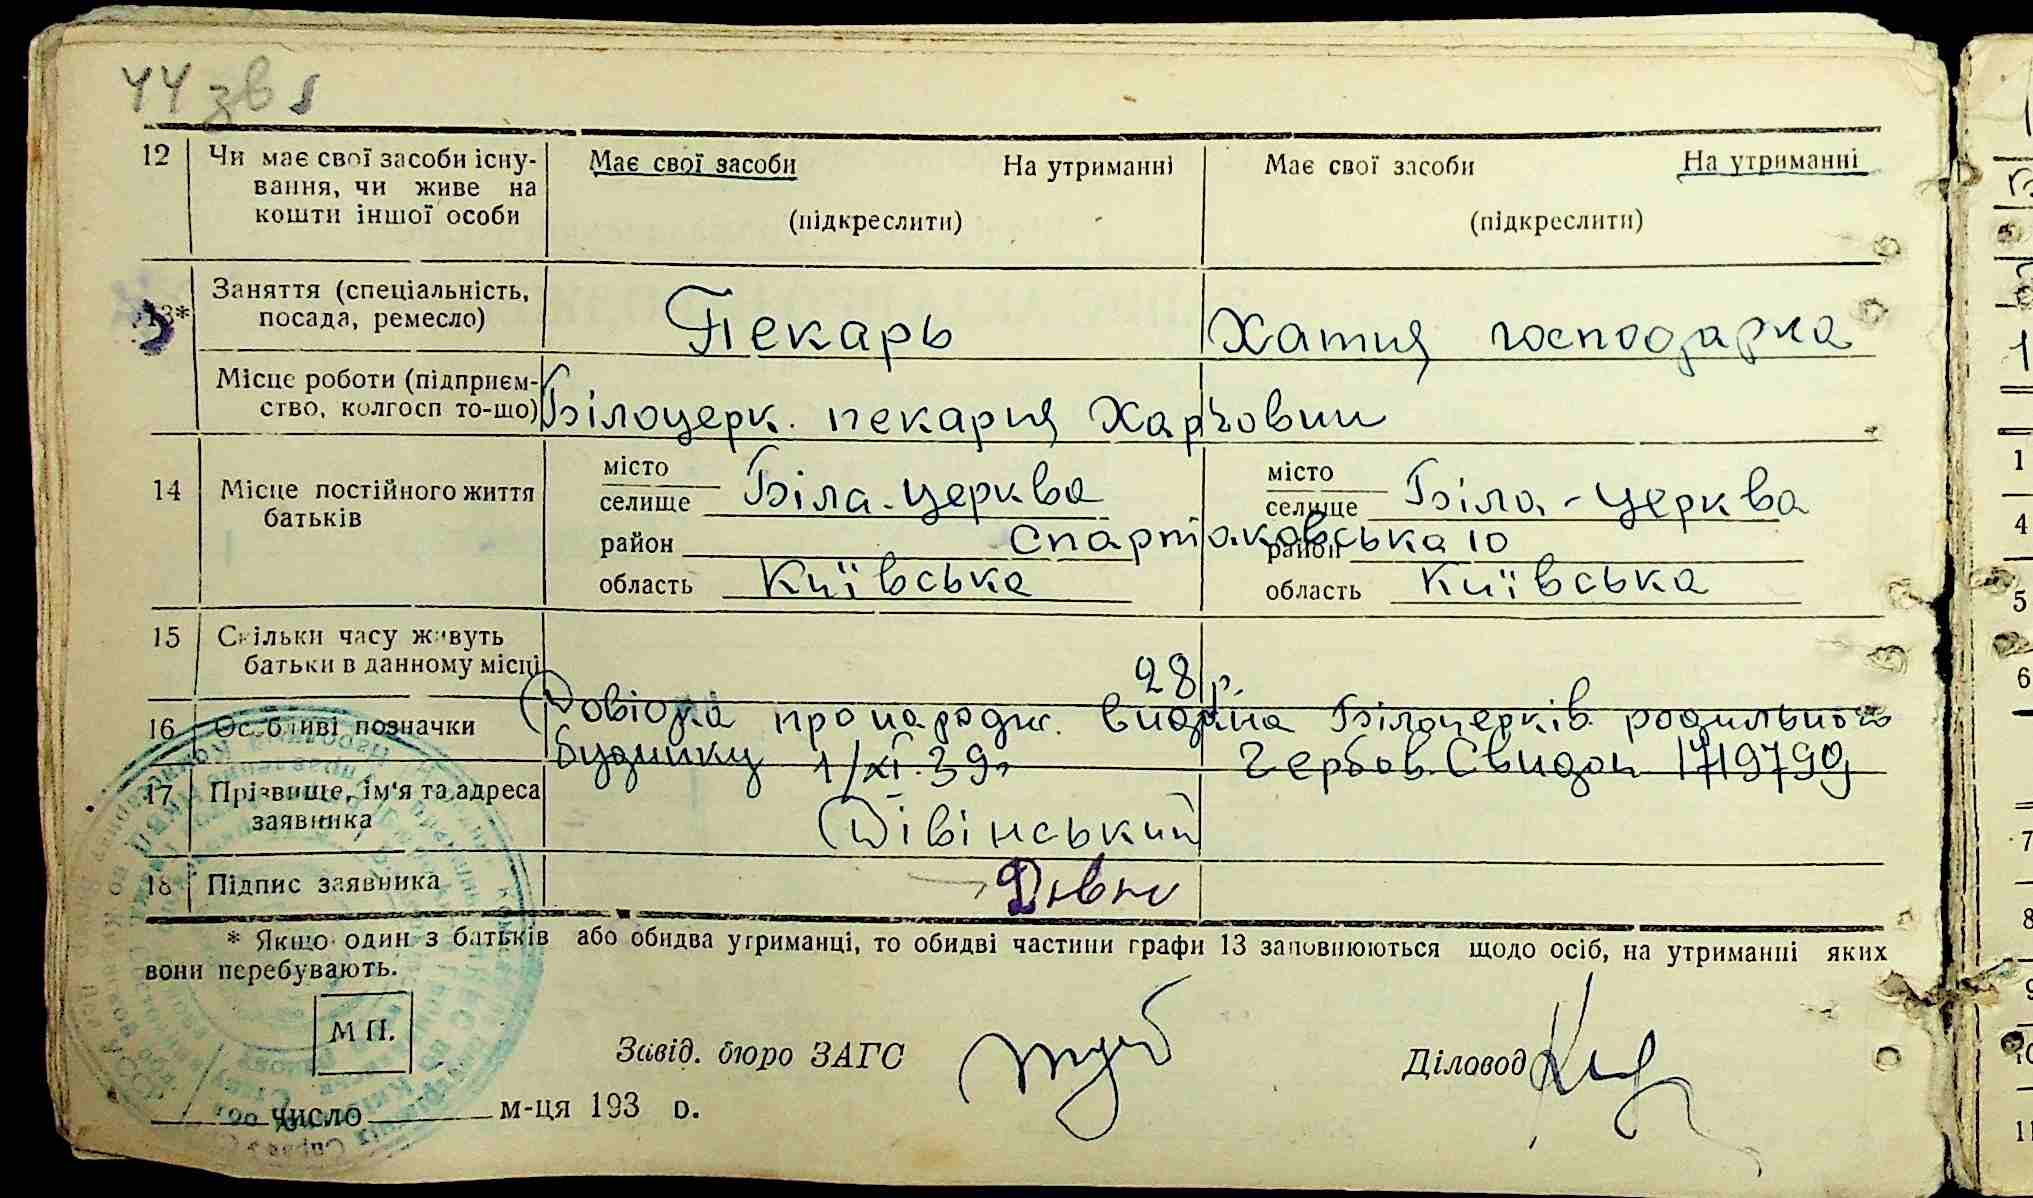 44 зв
12 Чи має свої засоби існу- Має свої засоби На утриманні Має свої засоби На утриманні
вання, чи живе на
кошти іншої особи (підкреслити) (підкреслити)
13* Заняття (спеціальність,
посада, ремесло) Пекарь Хатня господарка
Місце роботи (підприєм-
ство, колгосп то-що) Білоцерк. пекарня Харчовик
14 Місце постійного життя
батьків
місто
селище Біла-церква
місто
селище Біла-церква
район Спартаковська 10 район
область Київська область Київська
15 Скільки часу живуть
батьки в данному місці 28 р.
16 Особливі позначки Довідка про народж. видана Білоцерків. родильного
будинку 1/XI.39р Гербов. Свидоц 1719799
17 Прізвище, ім'я та адреса
заявника Дівінський
18 Підпис заявника
* Якщо один з батьків або обидва утриманці, то обидві частини графи 13 заповнюються щодо осіб, на утриманні яких
вони перебувають.
М П.
Завід. бюро ЗАГС Діловод
число м-ця 193 о.